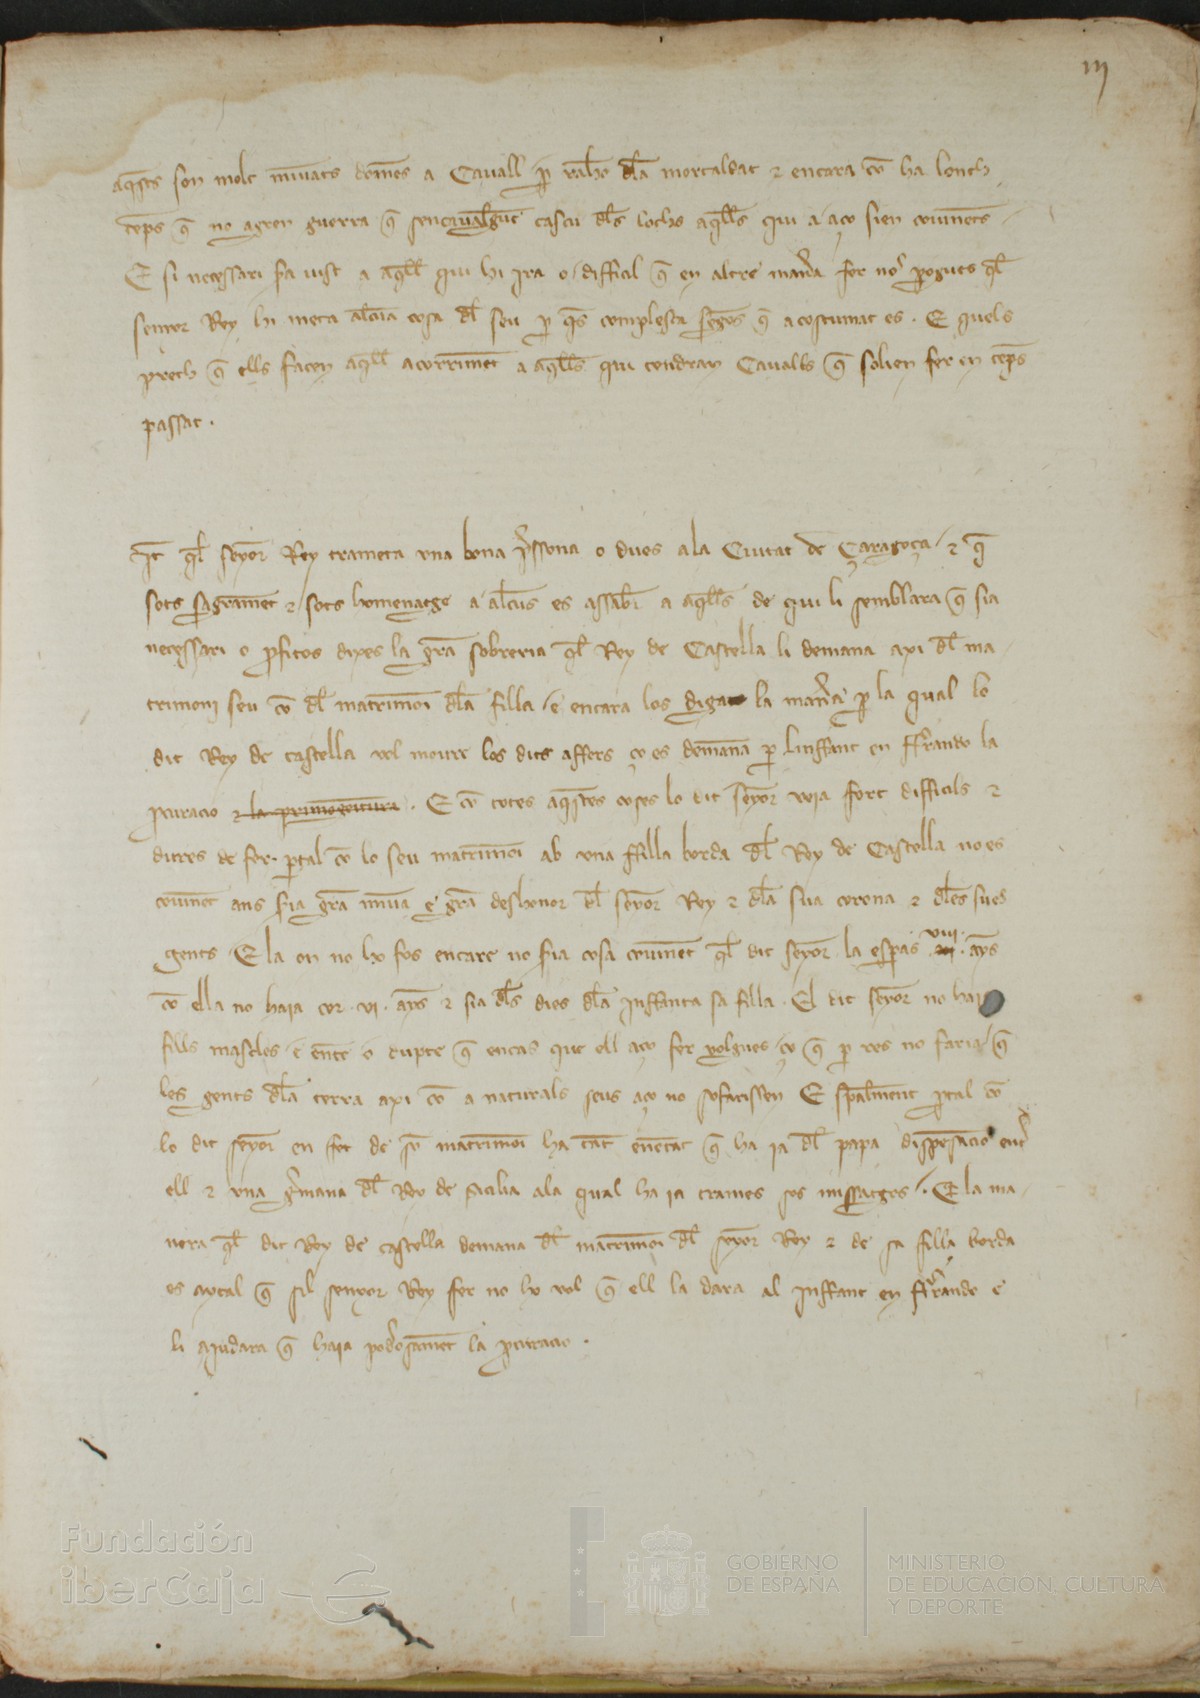 iij
aq̃sts son molt minuats domẽs a Cavall ꝑ raho dl̃a mortaldat ⁊ encara cõ ha lonch
tẽps q̃ no agren guerra q̃ sencavalguẽ cascu dl̃s lochs aq̃lls qui a aço sien covinẽts
E si necessari sia vist a aq̃ll qui hi ira o difficil q̃ en altre maña fer nos pogues ql̃
senyor Rey hi meta alc̃na cosa dl̃ seu ꝑ q̃s complesca segõs q̃ acostumat es . E quels
prech q̃ ells facen aq̃ll acorrimẽt a aq̃lls qui tendran Cavalls q̃ solien fer en tẽps
passat .
Itẽ ql̃ seyor Rey trameta una bona ꝑssona o dues ala Ciutat de Çaragoça / ⁊ q̃
sots sagramẽt ⁊ sots homenatge a alc̃us es assab̃ a aq̃lls de qui li semblara q̃ sia
necessari o ꝓfitos dixes la grã sobreria ql̃ Rey de Castella li demana axi dl̃ ma
trimoni seu cõ dl̃ matrimõi dl̃a filla / e encara los diga la mañia ꝑ la qual lo
dit Rey de castella vol moure los dits affers ço es demana ꝑ linffant en fferando la
ꝓcuracio ⁊ la primogenitura . E cõ totes aq̃stes coses lo dit seyor veia fort difficils ⁊
dures de fer . ꝑtal cõ lo seu matrimõi ab una ffilla borda dl̃ Rey de Castella no es
covinẽt ans sia grã minua e grã deshonor dl̃ seyor Rey ⁊ dl̃a sua corona ⁊ dl̃es sues
gents . E la on no ho fos encare no sia cosa covinẽt ql̃ dit seyor la esꝑas . viii . ays
cõ ella no haia cor . vi . ays ⁊ sia dl̃s dies dl̃a Inffanta sa filla . El dit seyor no hai
fills mascles e en̄te o dupte q̃ encas que ell aço fer volgues ço q̃ ꝑ res no faria / q̃
les gents dl̃a terra axi cõ a naturals seus aço no sofarissen E sp̃almẽt ꝑtal cõ
lo dit seyor en fet de so matrimõi ha tãt enẽtat q̃ ha ia dl̃ papa dispẽsacio ent̃
ell ⁊ una gmana dl̃ Rey de Sicilia ala qual ha ia trames sos missatges / . E la ma
nera ql̃ dit Rey de castella demana dl̃ matrimõi dl̃ seyor Rey ⁊ de sa filla borda
es aytal q̃ sil senyor Rey fer no ho vol q̃ ell la dara al Inffant en fferando e
li ajudara q̃ haia poderosamẽt la ꝓcuracio .
Fundación
iberCaja
GOBIERNO
DE ESPAÑA
MINISTERIO
DE EDUCACIÓN, CULTURA
Y DEPORTE